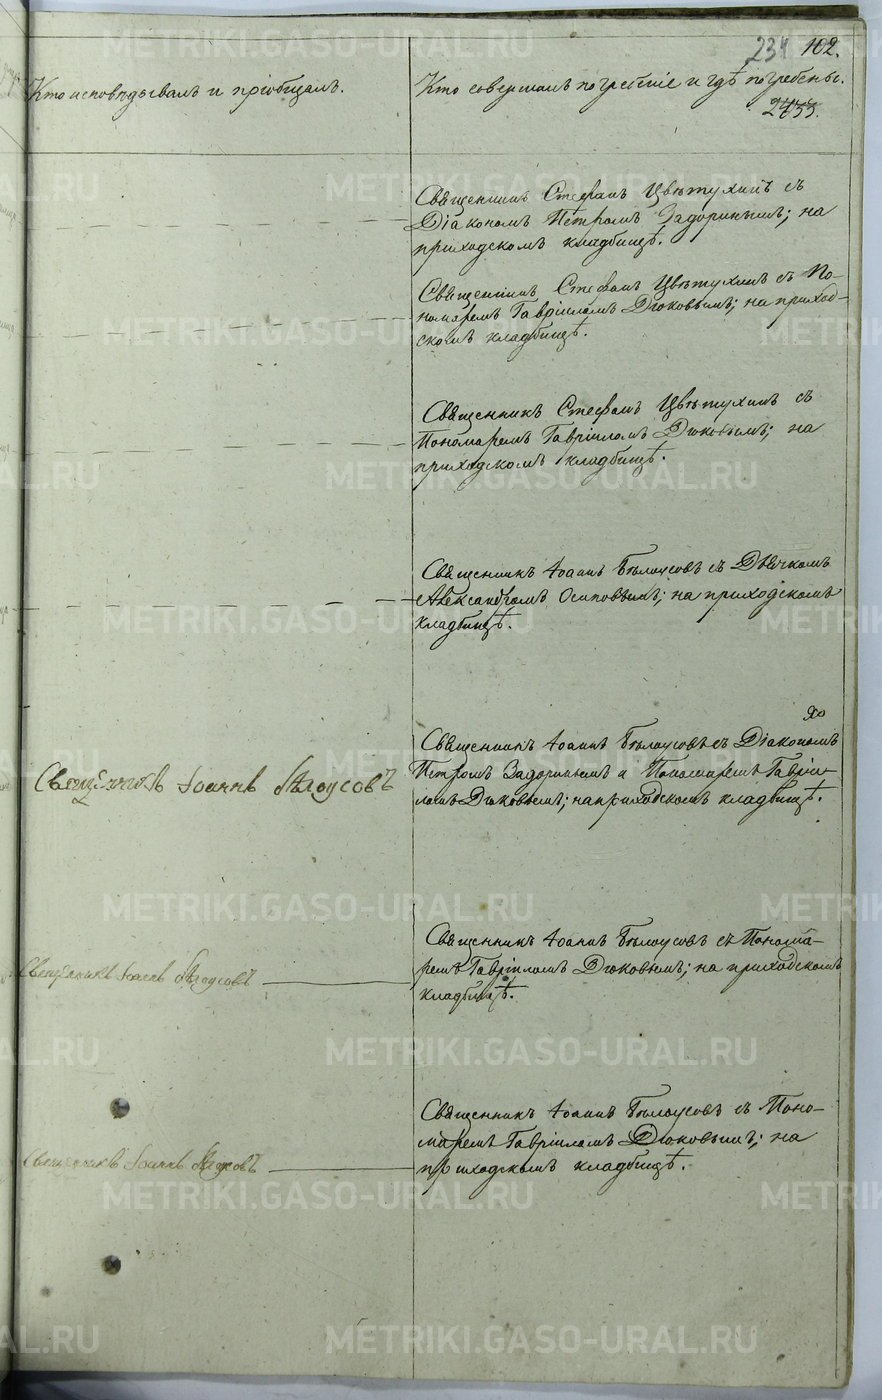 234 102.
Кто исповѣдывалъ и пріобщалъ.
Кто совершалъ погребеніе и гдѣ погребены.
2433.
Священникъ Стефанъ Цвѣтухинъ съ
Діакономъ Петромъ Задоринымъ; на
приходскомъ кладбищѣ.
Священникъ Стефанъ Цвѣтухинъ съ По-
номаремъ Гавріиломъ Дюковымъ; на приход-
скомъ кладбищѣ.
Священникъ Стефанъ Цвѣтухинъ съ
Пономаремъ Гавріиломъ Дюковымъ; на
приходскомъ кладбищѣ.
Священникъ Іоаннъ Бѣлоусовъ съ Дьячкомъ
Александромъ Осиповымъ; на приходскомъ
кладбищѣ.
Священникъ Іоаннъ Бѣлоусовъ
Священникъ Іоаннъ Бѣлоусовъ съ Діакономъ
Петромъ Задоринымъ и Пономаремъ Гавріи-
ломъ Дюковымъ; на приходскомъ кладбищѣ.
Священникъ Іоаннъ Бѣлоусовъ
Священникъ Іоаннъ Бѣлоусовъ съ Понома-
ремъ Гавріиломъ Дюковымъ; на приходскомъ
кладбищѣ.
Священникъ Іоаннъ Бѣлоусовъ
Священникъ Іоаннъ Бѣлоусовъ съ Поно-
маремъ Гавріиломъ Дюковымъ; на
приходскомъ кладбищѣ.
METRIKI.GASO-URAL.RU